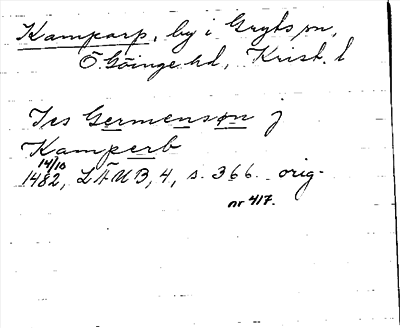 Kamparp, by i Gryts sn,
Ö. Göinge hd, Krist. l
Jes Germensøn j
Kamperb
14/10
1482, LÄUB, 4, s. 366. orig.
nr 417.